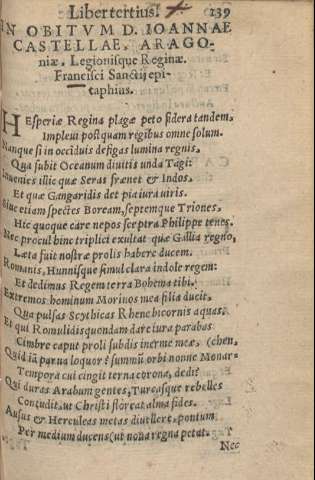 Liber tertius. 139
IN OBITVM D. IOANNAE
CASTELLAE, ARAGO-
niæ, Legionisque Reginæ.
Francisci Sanctij epi-
taphius.
HEsperiæ Regina plagæ peto sidera tandem,
Impleui postquam regibus omne solum.
Nanque si in occiduis defigas lumina regnis,
Qua subit Oceanum diuitis unda Tagi:
Inuenies illic quæ Seras frænet & Indos,
Et quæ Gangaridis det pia iura viris.
Siue etiam spectes Boream, septemque Triones,
Hic quoque care nepos sceptra Philippe tenes.
Nec procul hinc triplici exultat quæ Gallia regno,
Læta suit nostræ prolis habere ducem.
Romanis, Hunnisque simul clara indole regem:
Et dedimus Regem terra Bohema tibi.
Extremos hominum Morinos mea filia ducit,
Qua pulsas Scythicas Rhene bicornis aquas.
Et qui Romulidis quondam dare iura parabas
Cimbre caput proli subdis inerme meæ. (chen,
Quid iã parua loquor? summũ orbi nonne Monar-
Tempora cui cingit terna corona, dedi?
Qui duras Arabum gentes, Turcasque rebelles
Contudit, ut Christi floreat alma fides.
Ausus & Herculeas metas diuellere, pontum
Per medium ducens, ut noua regna petat.
Nec